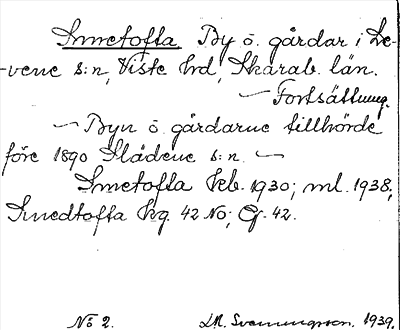 Smetofta By o. gårdar i Le-
-vene s:n, Viste hd, Skarab. län.
— Fortsättning.
— Byn o. gårdarne tillhörde
före 1890 Slädene s:n. —
Smetofta kb. 1930; ml. 1938,
Smedtofta kg. 42 NO; Gj. 42.
No 2. D.A. Svenningson. 1939.